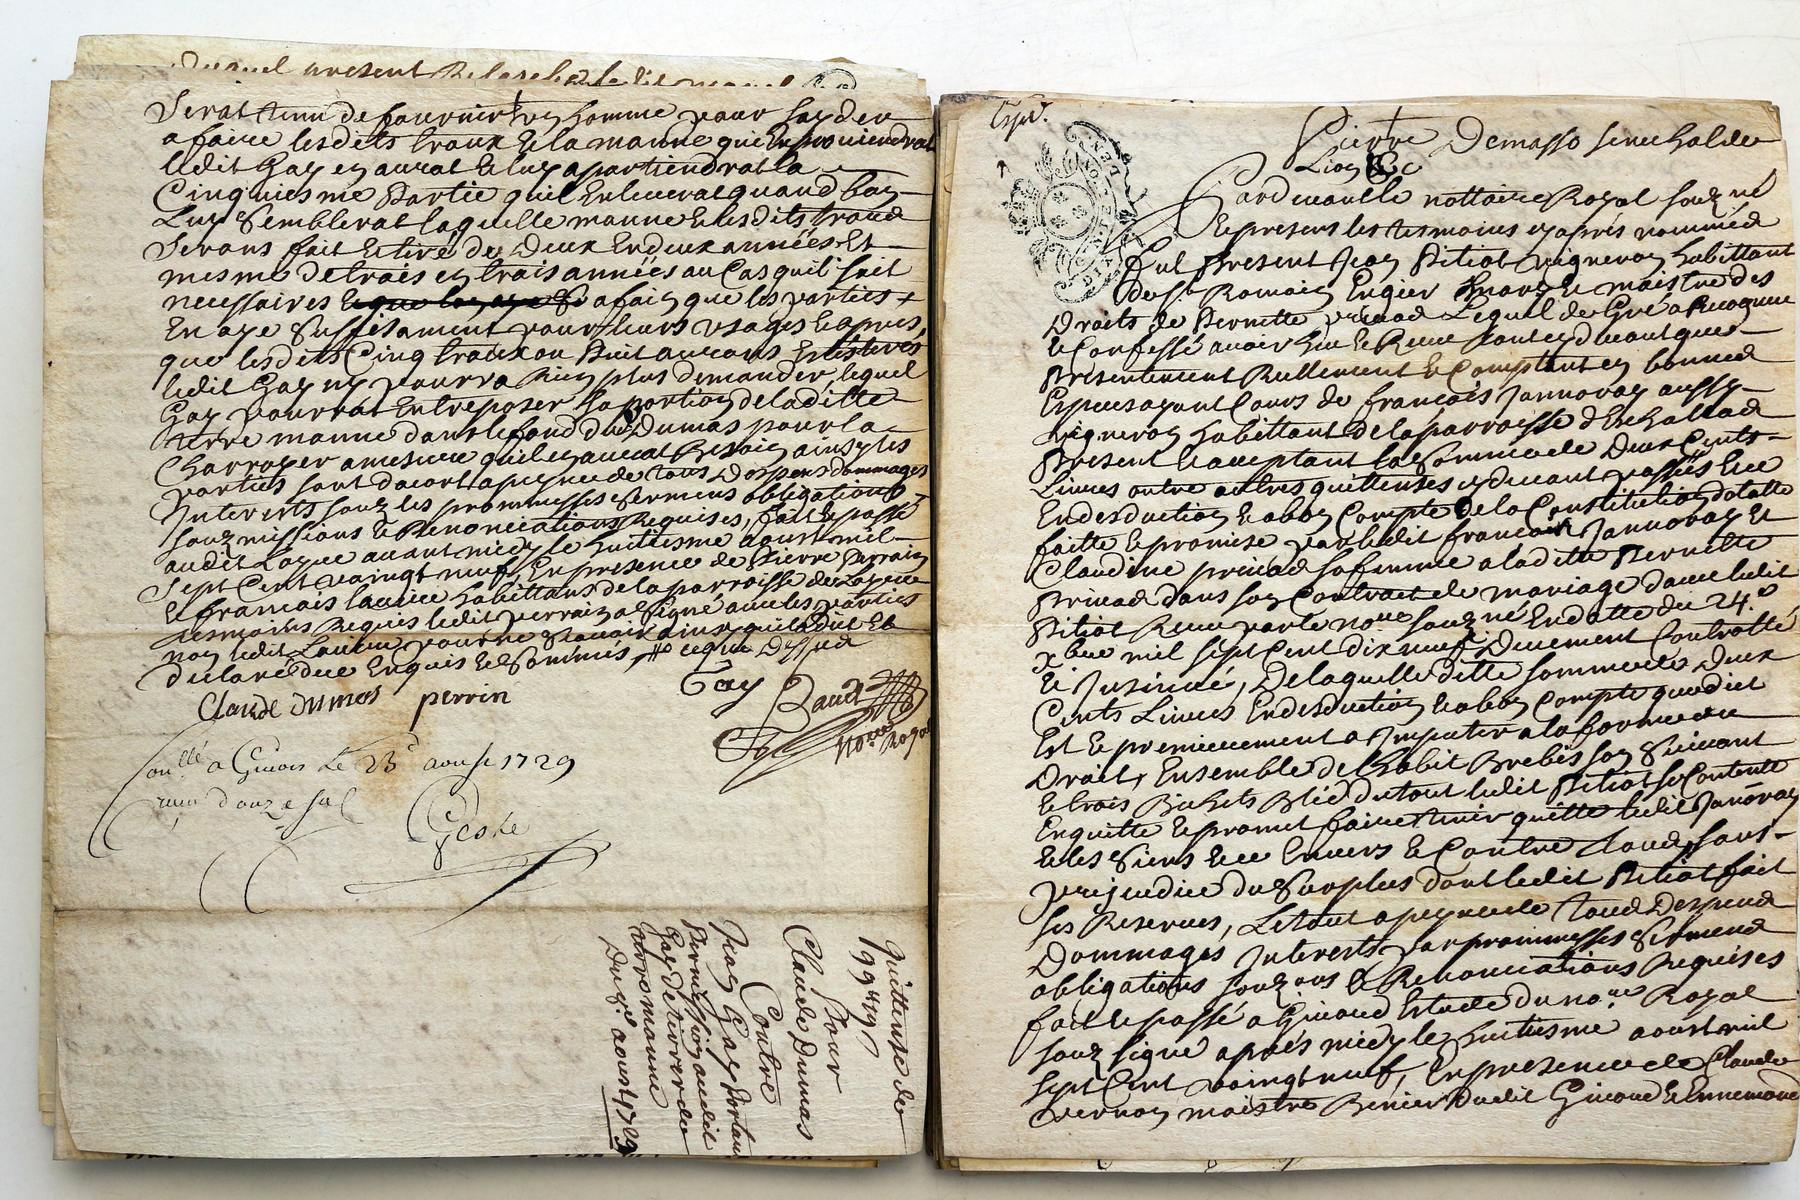 Serat tenu de fournir un homme pour layder
a faire lesdits traux & la manne qui en proviendrat
ledit Gay en aurat & luy apartiendrat la
Cinquiesme Partie quil enleverat quand bon
Luy Semblerat laquelle manne & lesdits traux
Serons fait & tiré de Deux en deux années Et
mesme de trais en trais années au Cas quil soit
necessaires affain que les parties
En aye Suffisament pour leurs usages & apres
que lesdits Cinq traux ou Puit aurons Esté tirés
ledit Gay ny pourra Rien plus demander, lequel
Gay pourrat Entreposer sa portion de laditte
terre manne dans le fond du Dumas pour la
Charroyer a mesure quil en aurat Besoin ainsy les
parties sont dacort a peyne de tous Despens dommages
Interests sous les prommesses sermens obligations
soumissions & Renonciations Requises, fait & passé
audit avant midy le huitiesme aoust mil
Sept Cent vaingt neuf, En presence de Pierre Perrain
& francois habittans de la parroisse de
tesmoins Requis ledit perrain a signé avec les parties
non ledit pour ne Scavoir ainsy quil a dit Et
declaré de ce Enquis & Sommis ce que Dessus
Claude Dumas perrin Gay
No.re Royal
Con.llé a Givors Le 23 aoust 1729
Reçu douze sol
Geste
Quittense de
Pour
Claude Dumas
Contre
Jean Gay Portant
Permission audit
Gay de tirer de
terre manne
Du 8.e aoust 1729
Exped.
Pierre Demasso senechal de
Lion &c
Pardevant le nottaire Royal souz.né
& presens les tesmoins cy aprés nommés
fut Present Jean Pitiot vigneron habittant
de S.t Romain En gier mary & maistre des
Droits de Pernette Lequel de Gré a Recogneu
& Confessé avoir heu & Receu tant cy devant que
Presentement Rellement & Comptant en bonnes
Espesses ayant Cours de francois Jannoray aussy
vigneron habittant de la parroisse d'Echallas
present & acceptant la Somme de Deux Cents
Livres outre autres quittenses cy devant passées & ce
En desduction & a bon Compte de la Constitution dotalle
faitte & promise par ledit francois Jannoray &
Claudine sa femme a laditte Pernette
dans son Contrat de mariage davec ledit
Pitiot Receu par le no.re souz.né En datte du 24.e
x.bre mil sept cent dix neuf Duement Controllé
& Insinué, De laquelle ditte somme de Deux
Cents Livres En desduction & a bon Compte que dict
Est & premierement a Imputer a la forme du
Droit, Ensemble de l'habit Brebis son Suivant
& trois Bichets Blé du tout ledit Pitiot se Contente
En quitte & promet faire tenir quitte ledit Janoray
& les Siens & ce Envers & Contre tous, sans
prejudice du Surplus dont ledit Pitiot fait
ses Reserves, Le tout a peyne de tous Despens
Dommages Interests par prommesses Sermens
obligations souz.ons & Renonciations Requises
fait & passé a Givord Estude du no.re Royal
souz signé aprés midy le huitiesme aoust mil
sept Cent vaingt neuf, En presence de Claude
maistre dudit Givord & Ennemond